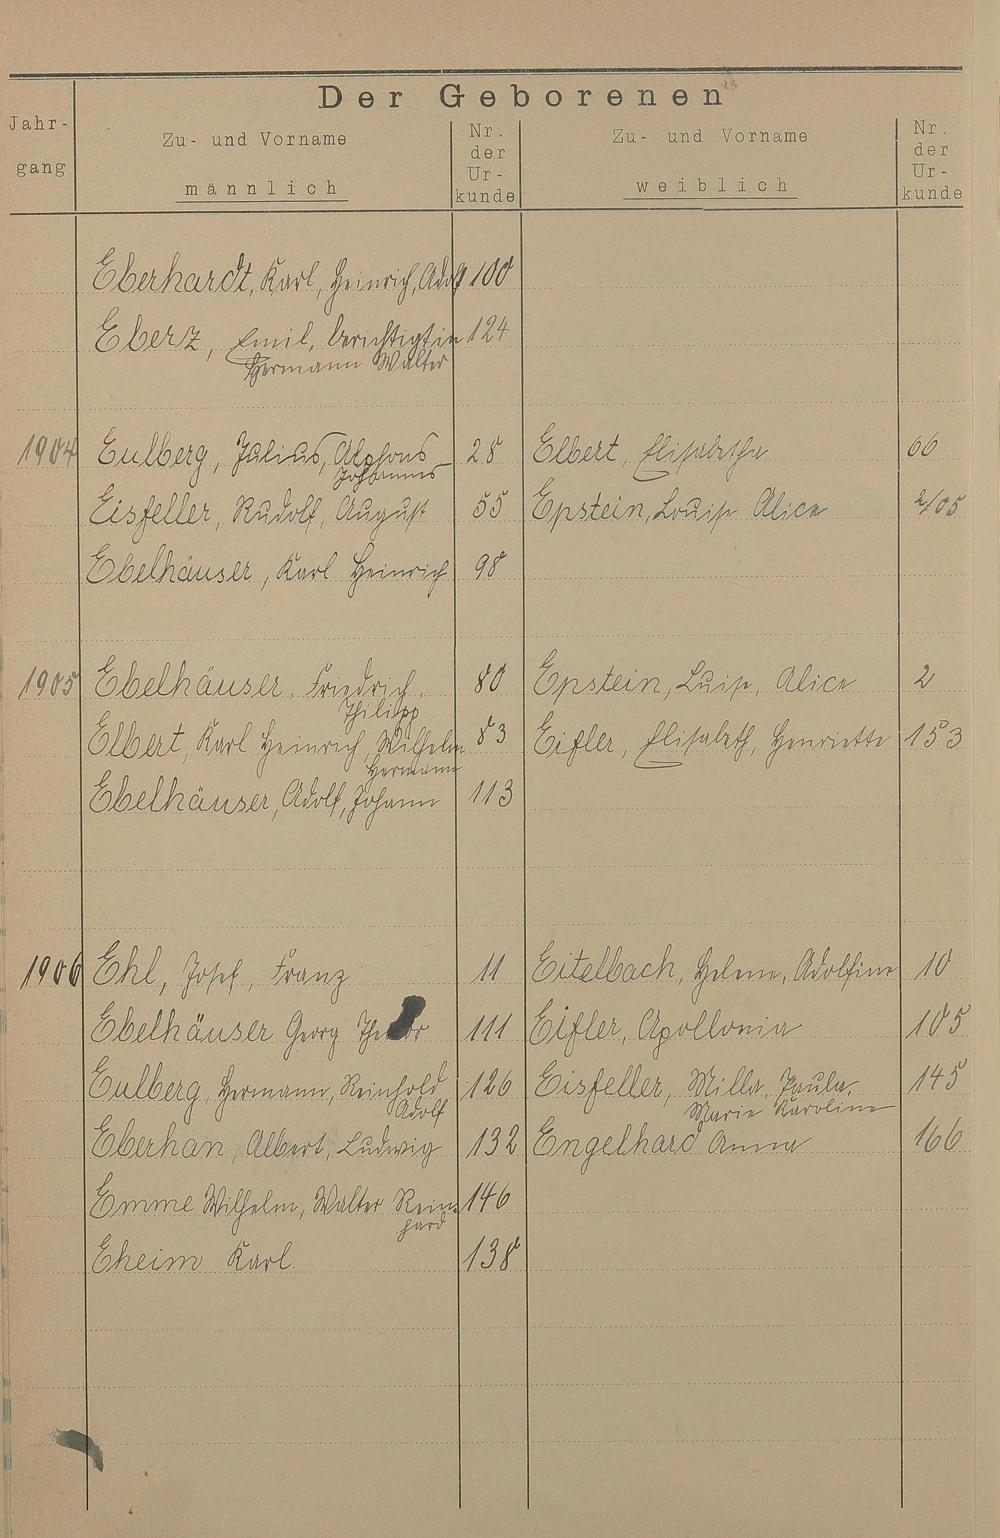 Der Geborenen
Jahr-
gang
Zu- und Vorname
männlich
Nr.
der
Ur-
kunde
Zu- und Vorname
weiblich
Nr.
der
Ur-
kunde
Eberhardt, Karl, Heinrich, Adolf 100
Eberz, Emil, berichtigt in 124
Hermann Walter
1904 Eulberg, Julius, Alphons 28 Elbert, Elisabetha 66
Johannes
Eisfeller, Rudolf, August 55 Epstein, Louise Alice 2/05
Ebelhäuser, Karl Heinrich 98
1905 Ebelhäuser, Friedrich, 80 Epstein, Luise, Alice 2
Philipp
Elbert, Karl Heinrich, Wilhelm 83 Eifler, Elisabeth, Henriette 153
Hermann
Ebelhäuser, Adolf, Johann 113
1906 Ehl, Josef, Franz 11 Eitelbach, Helene, Adolfine 10
Ebelhäuser Georg 111 Eifler, Apollonia 105
Eulberg, Hermann, Reinhold 126 Eisfeller, Milla, Paula,
145
Adolf Marie Karoline
Eberhan, Albert, Ludwig 132 Engelhard Anna 166
Emme Wilhelm, Walter Rein- 146
hard
Eheim Karl 138